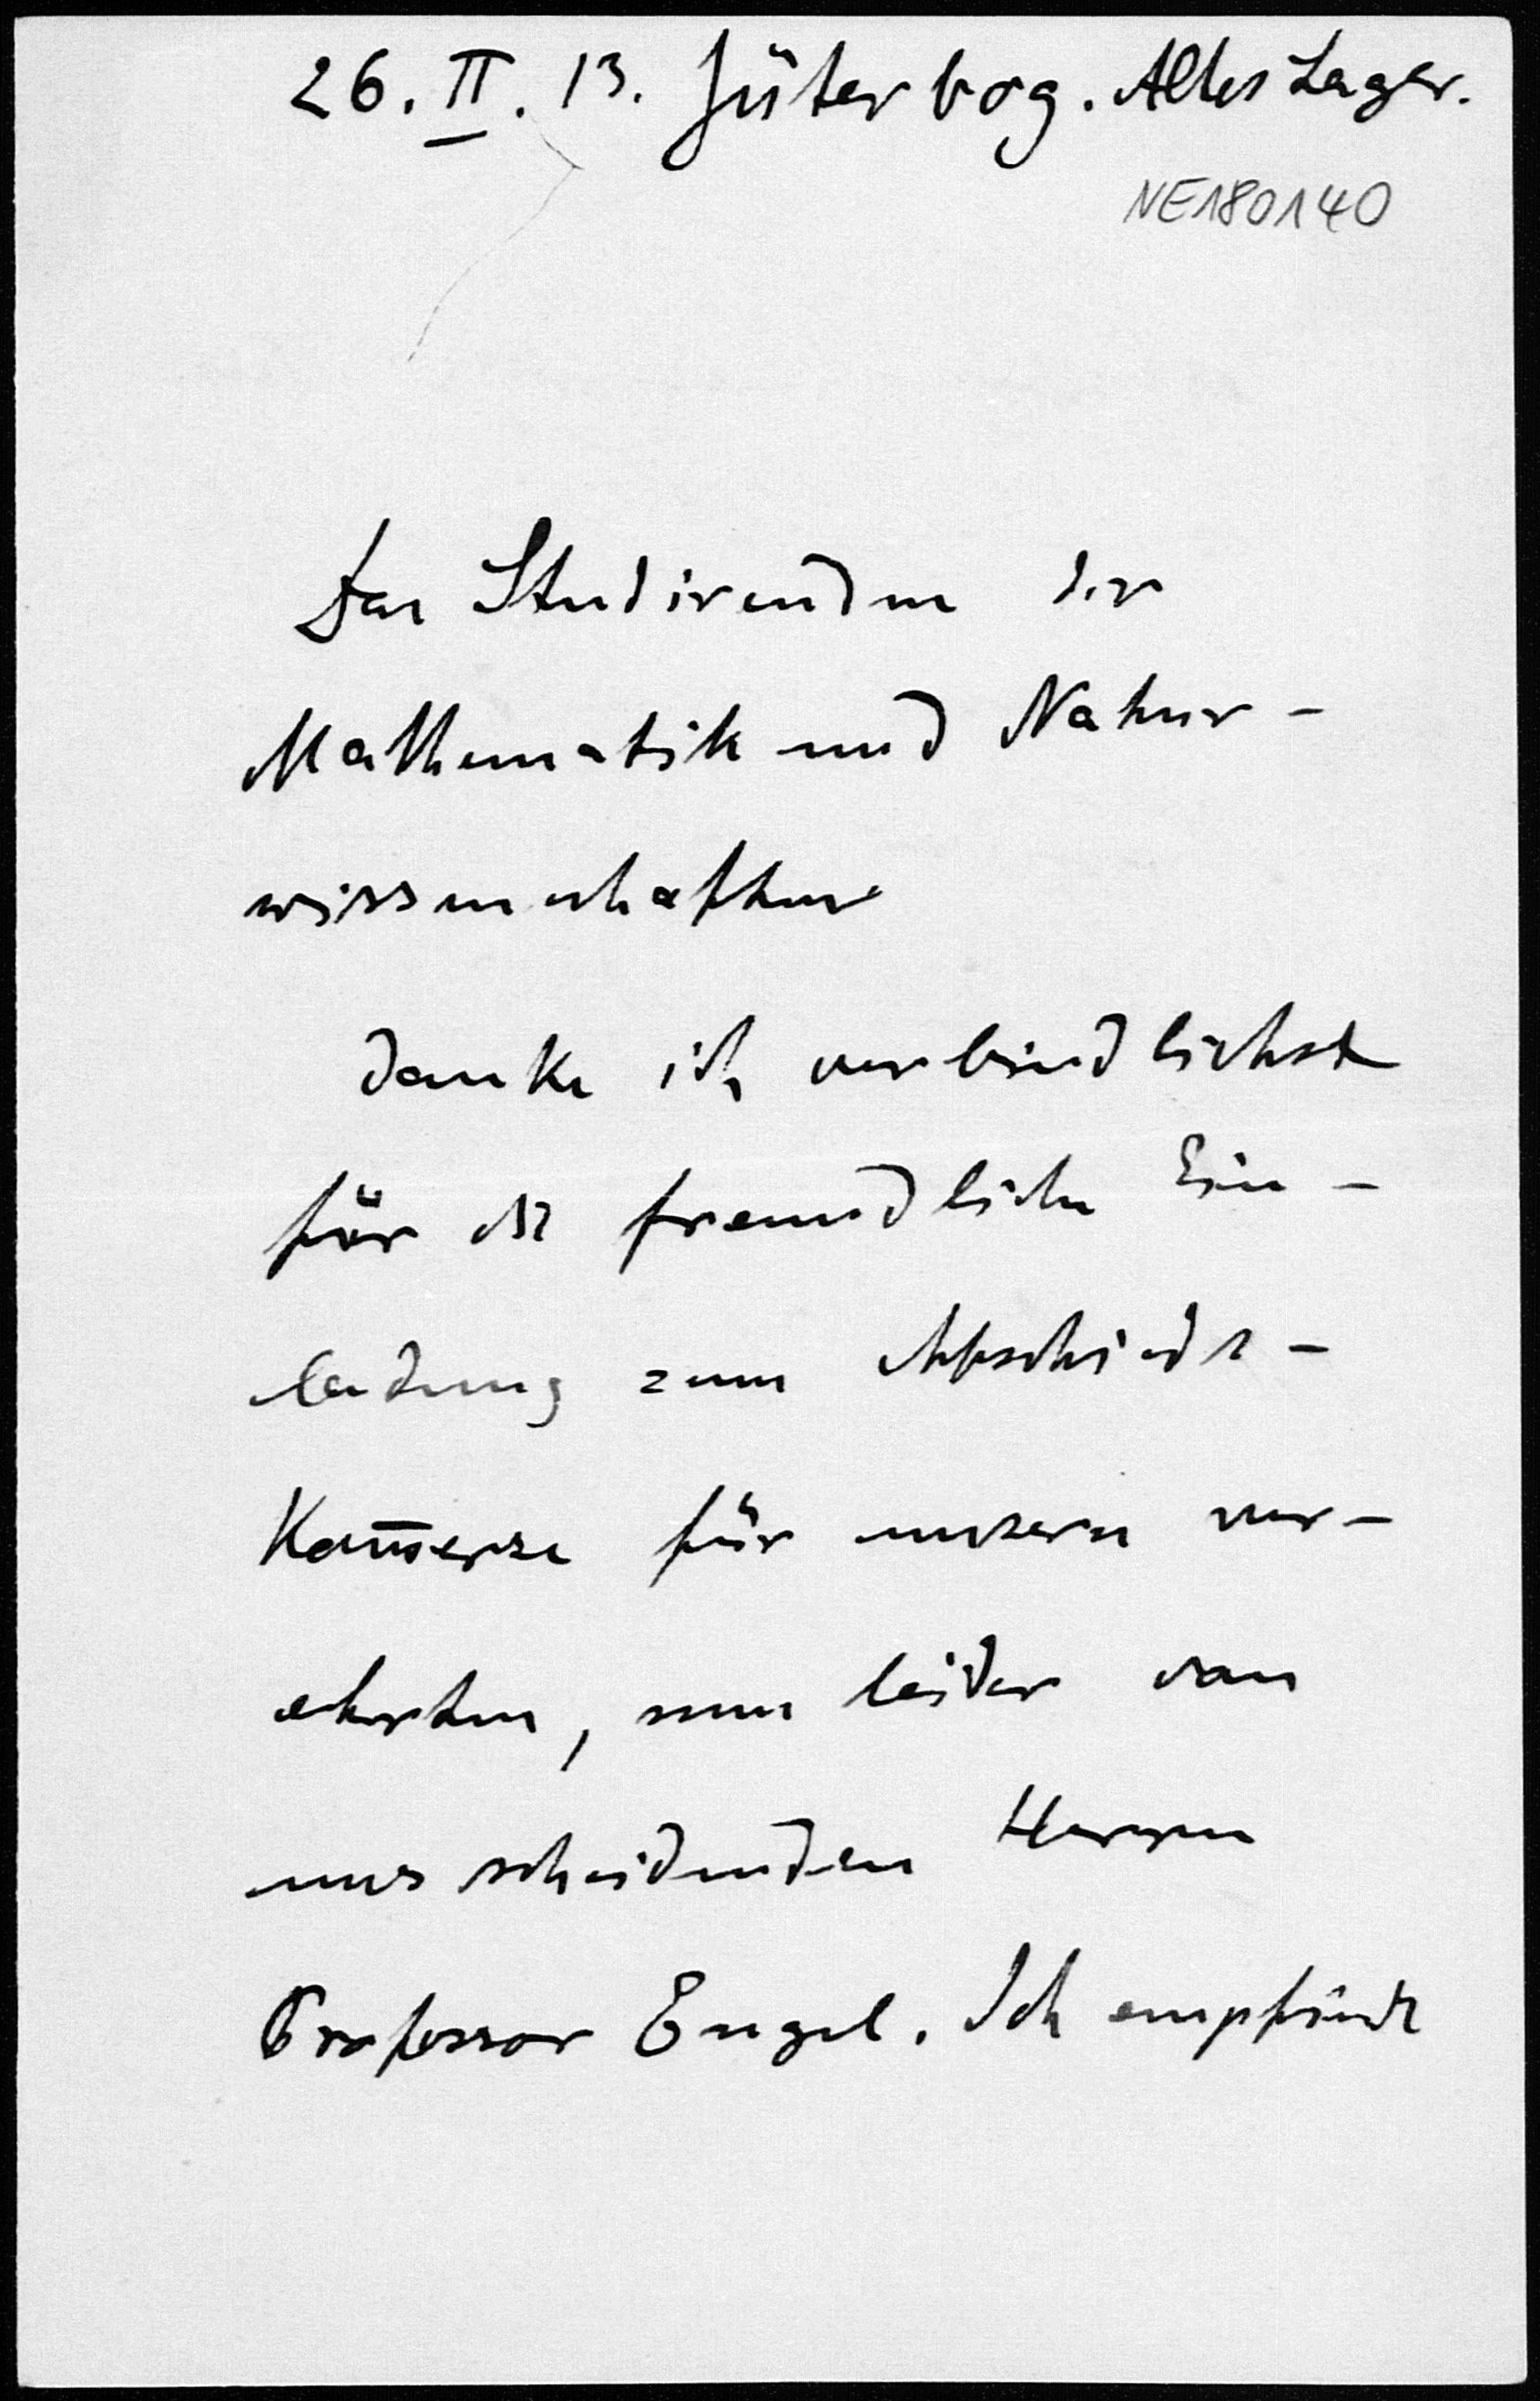 26. II. 13. Jüterbog. Altes Lager.
NE180140
Den Studirenden der
Mathematik und Natur-
wissenschaften
danke ich verbindlichst
für die freundliche Ein-
ladung zum Abschieds-
Kom̄erse für unsern ver-
ehrten, nun leider von
uns scheidenden Herren
Professor Engel. Ich empfinde